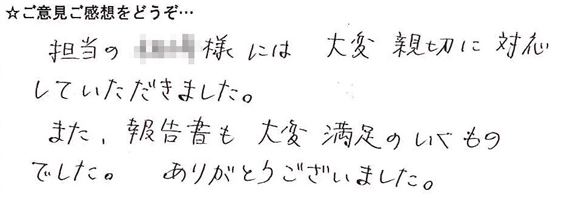 ☆ご意見ご感想をどうぞ…
担当の 様には 大変 親切に 対応
していただきました。
また、報告書も 大変 満足のいくもの
でした。 ありがとうございました。